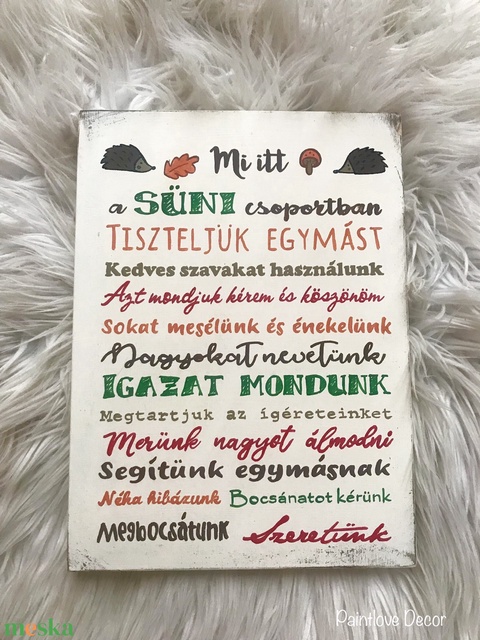 Mi itt
a SÜNI csoportban
TISZTELJÜK EGYMÁST
Kedves szavakat használunk
Azt mondjuk kérem és köszönöm
Sokat mesélünk és énekelünk
Nagyokat nevetünk
IGAZAT MONDUNK
Megtartjuk az ígéreteinket
Merünk nagyot álmodni
Segítünk egymásnak
Néha hibázunk Bocsánatot kérünk
Megbocsátunk Szeretünk
meska
Paintlove Decor